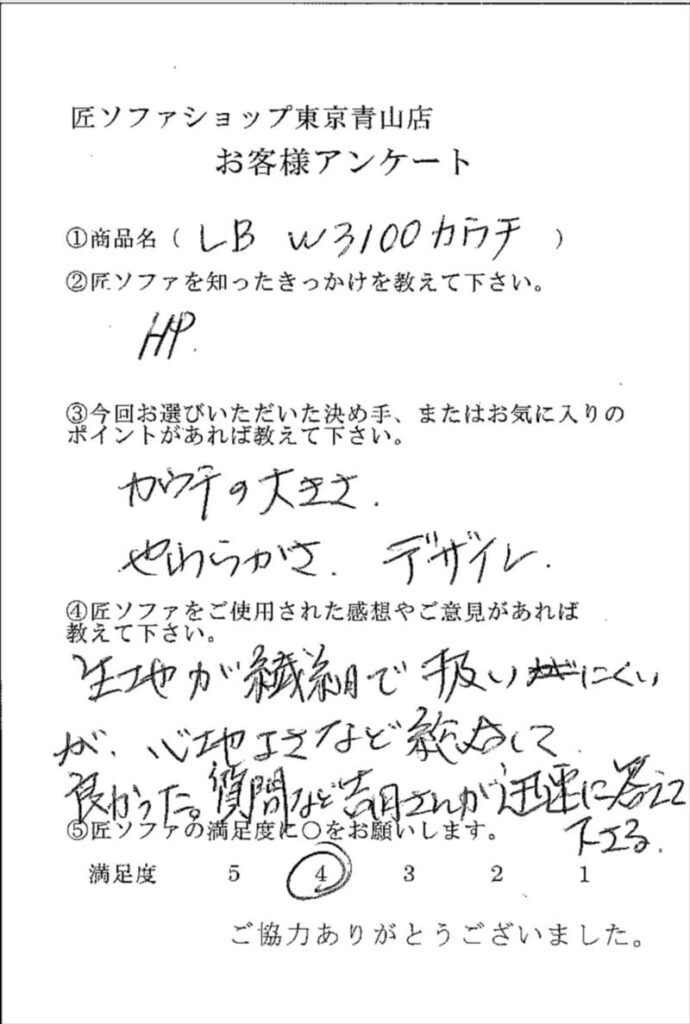 匠ソファショップ東京青山店
お客様アンケート
①商品名（ LB W3100カウチ ）
②匠ソファを知ったきっかけを教えて下さい。
HP.
③今回お選びいただいた決め手、またはお気に入りの
ポイントがあれば教えて下さい。
カウチの大きさ.
やわらかさ. デザイン.
④匠ソファをご使用された感想やご意見があれば
教えて下さい。
生地が繊細で扱いにくい
が、心地よさなど総合して
良かった。質問など吉田さんが迅速に答えて
下さる.
⑤匠ソファの満足度に○をお願いします。
満足度 5 4 3 2 1
ご協力ありがとうございました。